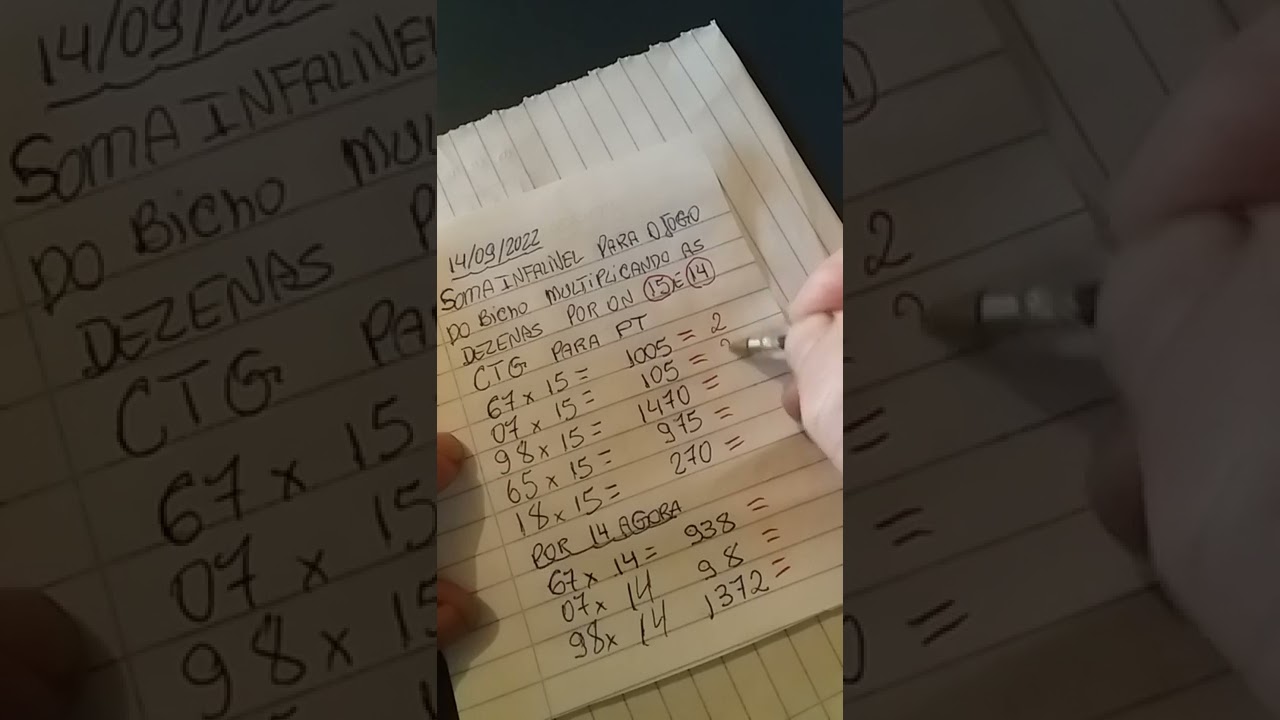 14/09/2022
SOMA INFALIVEL PARA O JOGO
DO BICHO MULTIPLICANDO AS
DEZENAS POR ON 15 E 14
CTG PARA PT
67 x 15 = 1005 = 2
07 x 15 = 105 =
98 x 15 = 1470 =
65 x 15 = 975 =
18 x 15 = 270 =
POR 14 AGORA
67 x 14 = 938 =
07 x 14 98 =
98 x 14 1372 =